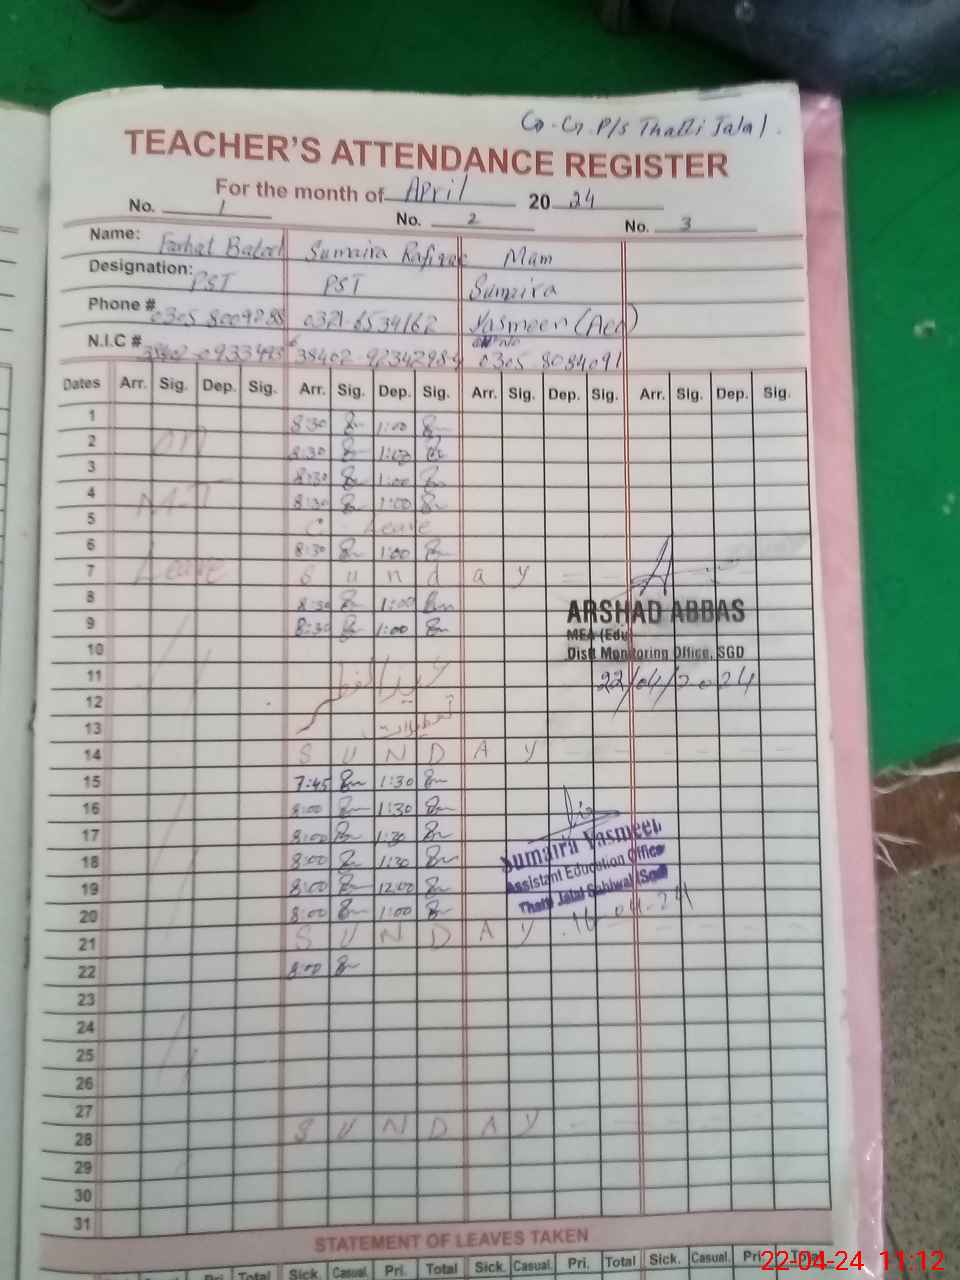 G.G.P/S Thatti Jalal.
TEACHER'S ATTENDANCE REGISTER
For the month of April 2024
No. 1 No. 2 No. 3
Name: Farhat Sumaira Rafique Mam
Designation: PST PST Sumaira
Phone # 0321-6534162 Yasmeen (Aeo)
N.I.C # 0305 8084091
Dates Arr. Sig. Dep. Sig. Arr. Sig. Dep. Sig. Arr. Sig. Dep. Sig. Arr. Sig. Dep. Sig.
1 8:30 1:00
2 on 8:30 1:00
3 8:30 1:00
4 M-T 8:30 1:00
5 C. Leave
6 8:30 1:00
7 Leave Sunday
8 8:30 1:00
ARSHAD ABBAS
9 8:30 1:00
MEA (Edu)
10
Distt Monitoring Office, SGD
11 عید الفطر
22/04/2024
12
13 تعطیلات
14 SUNDAY
15 7:45 1:30
16 8:00 1:30
17 8:00 1:30
Sumaira Yasmeen
18 8:00 1:30
Assistant Education Office
19 8:00 12:00
Thatti Jalal Sahiwal (Sgd)
20 8:00 1:00
16-04-24
21 SUNDAY
22 8:00
23
24
25
26
27
28 SUNDAY
29
30
31
STATEMENT OF LEAVES TAKEN
Pri. Total Sick. Casual. Pri. Total Sick. Casual. Pri. Total Sick. Casual. Pri. Total
22-04-24 11:12